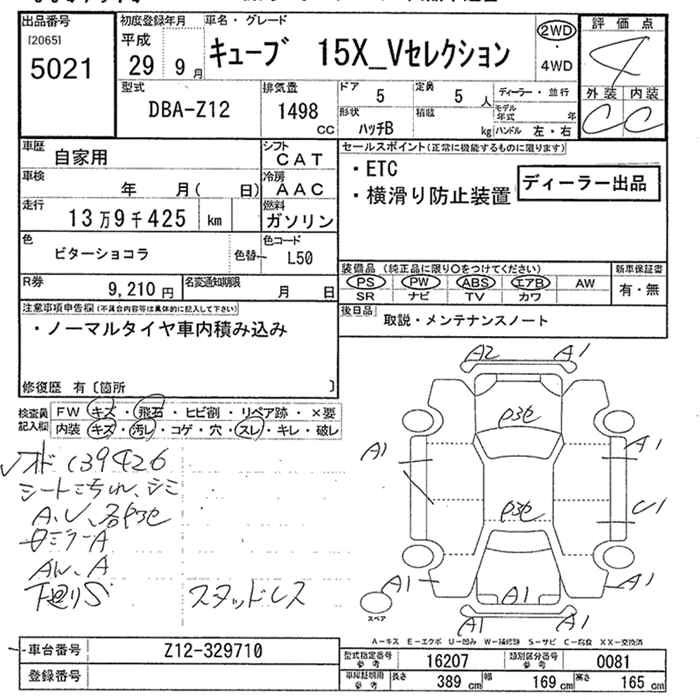 出品番号
[2065]
5021
初度登録年月
平成
29 9月
車名・グレード
キューブ 15X_Vセレクション
2WD
・
4WD
評価点
4
外装 内装
C C
型式
DBA-Z12
排気量
1498 CC
ドア
5
定員
5 人
形状
ハッチB
積載
kg
ディーラー・並行
モデル年式 年
ハンドル 左・右
車歴
自家用
シフト
CAT
車検
年 月( 日)
冷房
AAC
走行
13万9千425 km
燃料
ガソリン
色
ビターショコラ
色替
色コード
L50
R券
9,210円
名変通知期限
月 日
セールスポイント(正常に機能するものに限ります)
・ETC
・横滑り防止装置
ディーラー出品
装備品(純正品に限り○をつけてください)
PS PW ABS エアB AW
SR ナビ TV カワ
新車保証書
有・無
後日品
取説・メンテナンスノート
注意事項申告欄(不具合内容等は具体的に記入して下さい)
・ノーマルタイヤ車内積み込み
修復歴 有〔箇所 〕
検査員記入欄
FW キズ・飛石・ヒビ割・リペア跡・×要
内装 キズ・汚レ・コゲ・穴・スレ・キレ・破レ
139426
シートこすれ、シミ
ミラーA
下廻りS
スタッドレス
A2 A1
A1 A1
U1
A1 A1 A1
A1
スペア
A-キズ E-エクボ U-凹み W-補修跡 S-サビ C-腐食 XX-交換済
車台番号
Z12-329710
登録番号
型式指定番号 参考
16207
類別区分番号 参考
0081
車庫証明用 参考
長さ 389 cm
幅 169 cm
高さ 165 cm